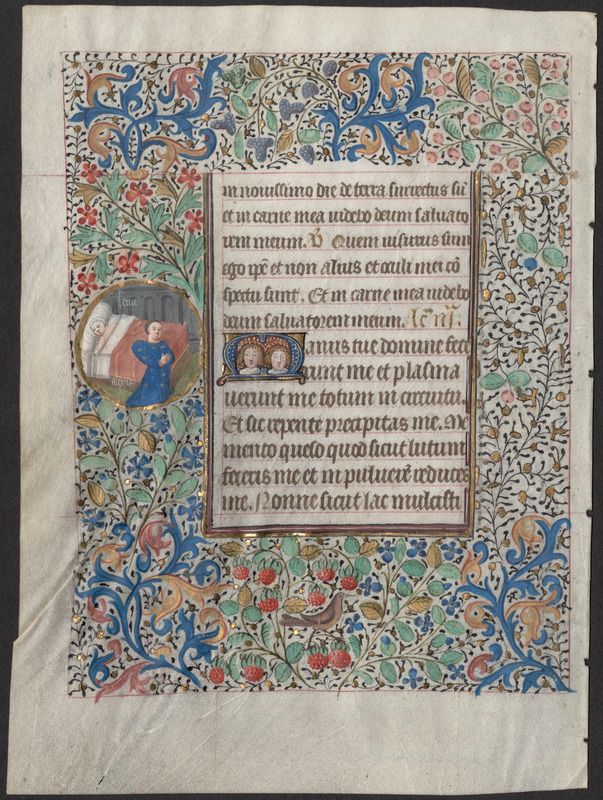 in nouissimo die de terra surrectus sū
et in carne mea uidebo deum saluato
rem meum. V Quem uisurus sum
ego ip̄e et non alius et oculi mei cō
spectu sunt. Et in carne mea uidebo
deum saluatorem meum.
Manus tue domine fece
runt me et plasma
uerunt me totum in circuitu.
Et sic repente precipitas me. Me
mento queso quod sicut lutum
feceris me et in puluerē reduces
me. Nonne sicut lac mulcisti